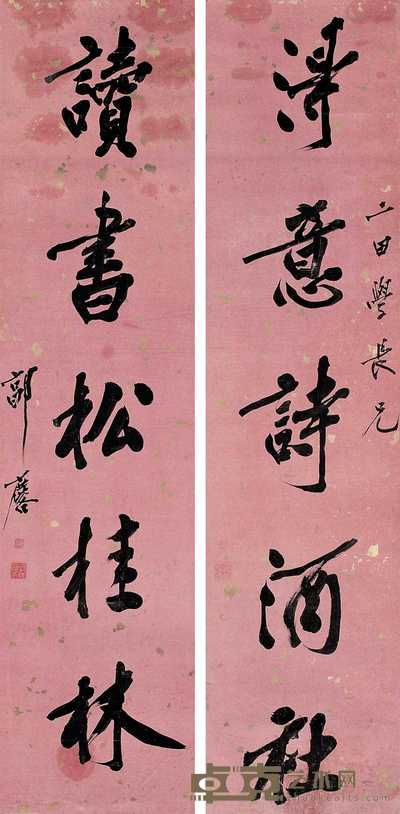 二田學長兄
得意詩酒社
讀書松桂林
郭麐
卓克艺术网